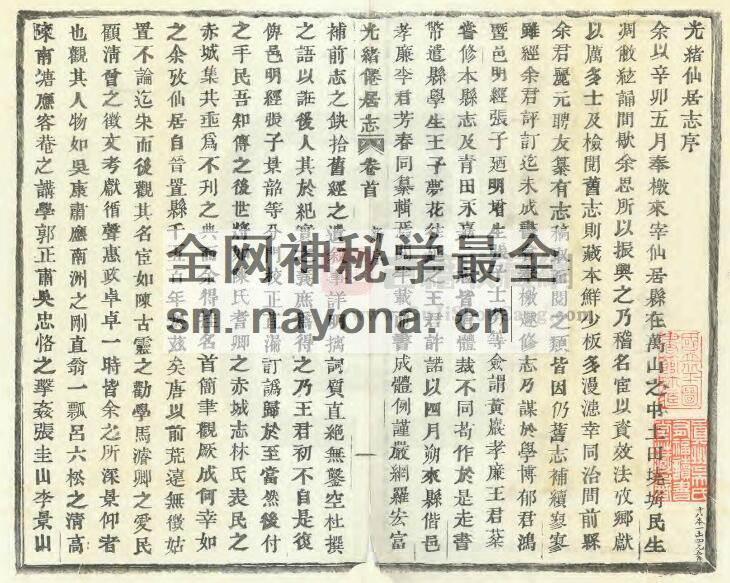 光緒仙居志序
余以辛卯五月奉檄來宰仙居縣在萬山之中土田堉埆民生
凋敝絃誦間歇余思所以振興之乃稽名宦以資效法攷鄉獻
以厲多士及檢閱舊志則藏本鮮少板多漫漶幸同治間前縣
余君麗元聘友纂有志稿 之類皆因仍舊志補續寥寥
雖經余君評訂迄未成書 檄趣修志乃謀於學博郁君鴻
暨邑明經張子廼明增生 士 等僉謂黃巖孝廉王君棻
嘗修本縣志及青田永嘉 體裁不同苟作於是走書
幣遣縣學生王子夢花往 王君許諾以四月朔來縣偕邑
孝廉李君芳春同纂輯 載 書成體例謹嚴網羅宏富
光緒僊居志 卷首
補前志之缺拾舊經之遺敘事詳 摘詞質直絶無鑿空杜撰
之語以誑後人其於紀實之義庶爲得之乃王君初不自是復
俾邑明經張子景韶等分門校正直漏訂譌歸於至當然後付
之手民吾知傳之後世將與陳氏耆卿之赤城志林氏表民之
赤城集共垂爲不刊之典而余得 名首簡聿觀厥成何幸如
之余攷仙居自晉置縣千 百年 茲矣唐以前荒遠無徵姑
置不論迄宋而後觀其名宦如陳古靈之勸學馬濬卿之愛民
顧清曾之徵文考獻循聲惠政卓卓一時皆余之所深景仰者
也觀其人物如吳康肅應南洲之剛直翁一瓢呂六松之清高
陳南塘應容菴之講學郭正肅吳忠恪之擊姦張圭山李景山
全网神秘学最全
sm.nayona.cn